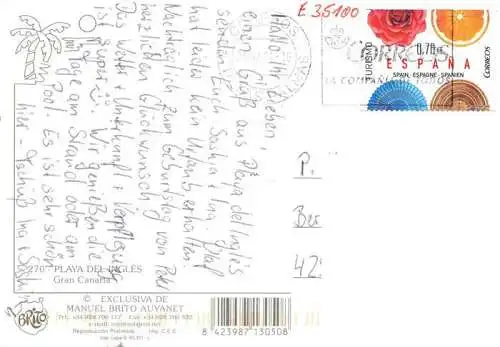 Hallo, Ihr Lieben,
einen Gruß aus Playa del Inglés
senden Euch Saskia + Ina. Olaf
hat leider kein Urlaub erhalten
Nachträgl. zum Geburtstag von Paul
herzlichen Glückwunsch
Das Wetter + Unterkunft + Verpflegung
ist super. Wir genießen die
Tage am Strand oder am
Pool. Es ist sehr schön
hier. Tschüß Ina + Saskia
E 35100
TURISMO
0,78 €
CORREOS
ESPAÑA
SPAIN, ESPAGNE, SPANIEN
CORREOS
LA COMPAÑIA DE TODOS
P.
Bre
42
270 - PLAYA DEL INGLÉS
Gran Canaria
© EXCLUSIVA DE
MANUEL BRITO AUYANET
BRITO
Reproducción Prohibida
8 423987 130508